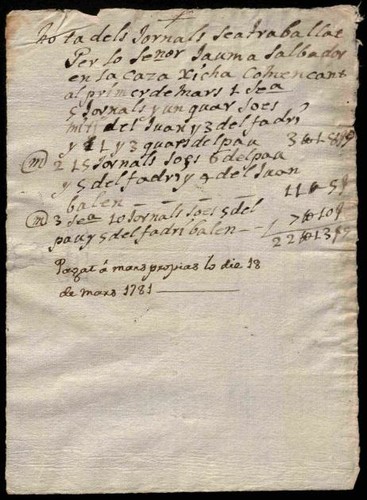 Nota dels Jornals se a traballat
Per lo Señor Jauma Salbador
en la Caza Xicha Comencant
al primer de mars 1 sea
5 Jornals y un quar Joes
del Juan y 3 del fadri
y 1 y 3 quars del pau
2 15 Jornals Joes 6 del pau
y 5 del fadri y 4 del Juan
balen
3 sea 10 Jornals Joes 5 del
pau y 5 del fadri balen
Pagat á mans propias lo die 18
de mars 1781